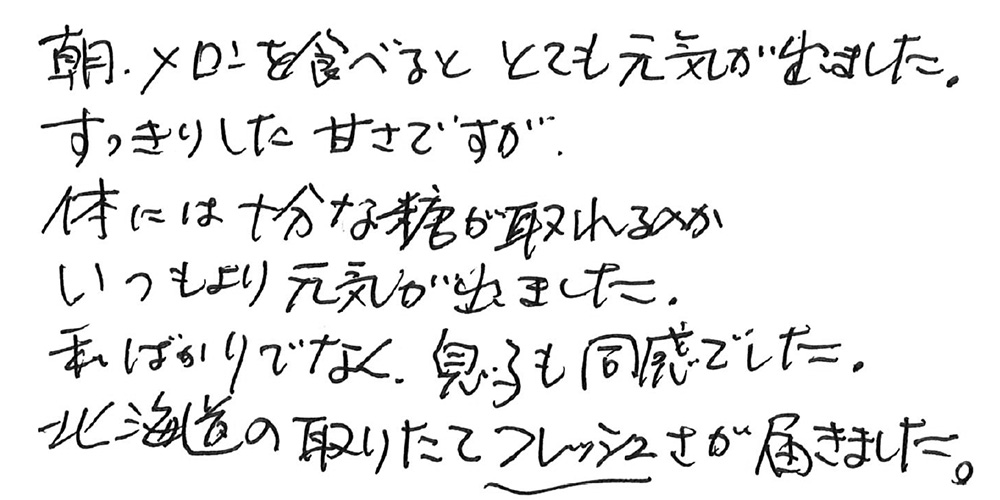 朝、メロンを食べると とても元気が出ました。
すっきりした甘さですが、
体には十分な糖が取れるのか
いつもより元気が出ました。
私ばかりでなく、息子も同感でした。
北海道の取りたてフレッシュさが届きました。